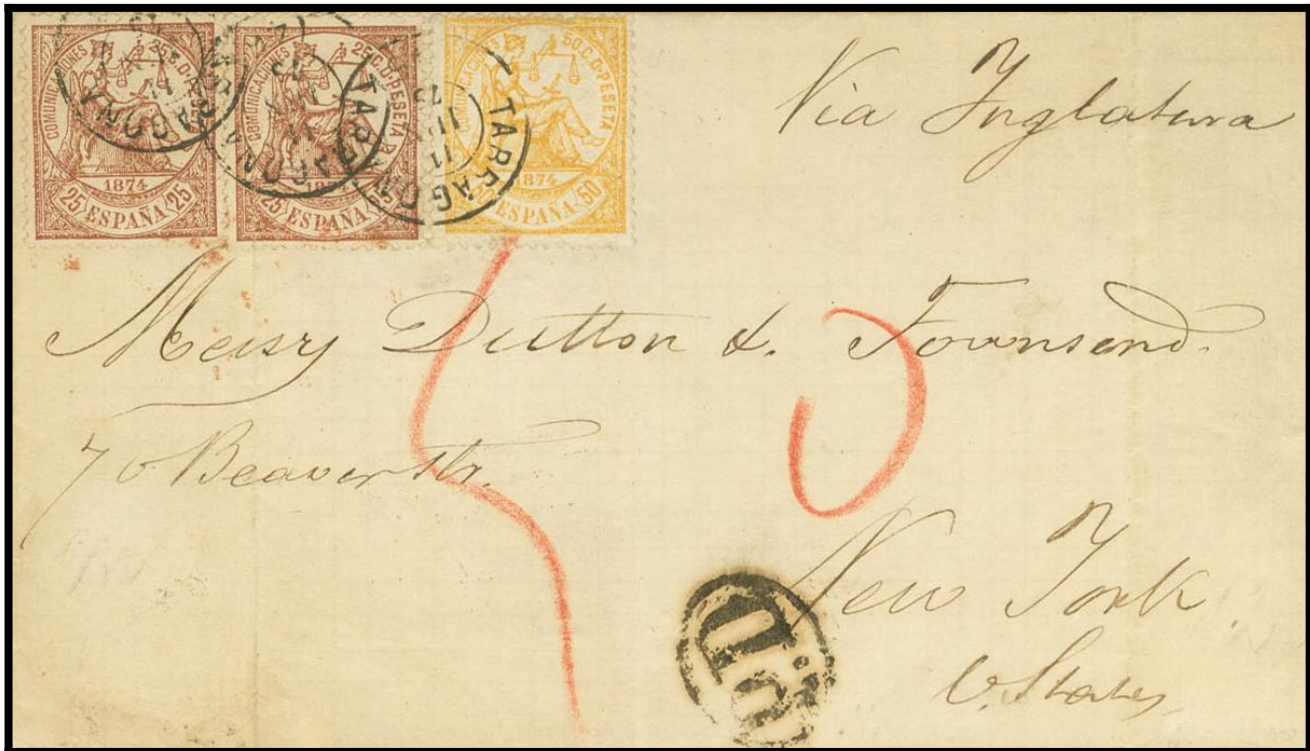 COMUNICACIONES 25 C. D PESETA
1874
25 ESPAÑA 25
TARRAGONA
COMUNICACIONES 25 C. D PESETA
25 ESPAÑA 25
TARRAGONA
COMUNICACIONES 50 C. D PESETA
1874
ESPAÑA 50
TARRAGONA
Via Inglaterra
Messrs Dutton & Townsend.
70 Beaver Str.
New York.
U. States
P.D.